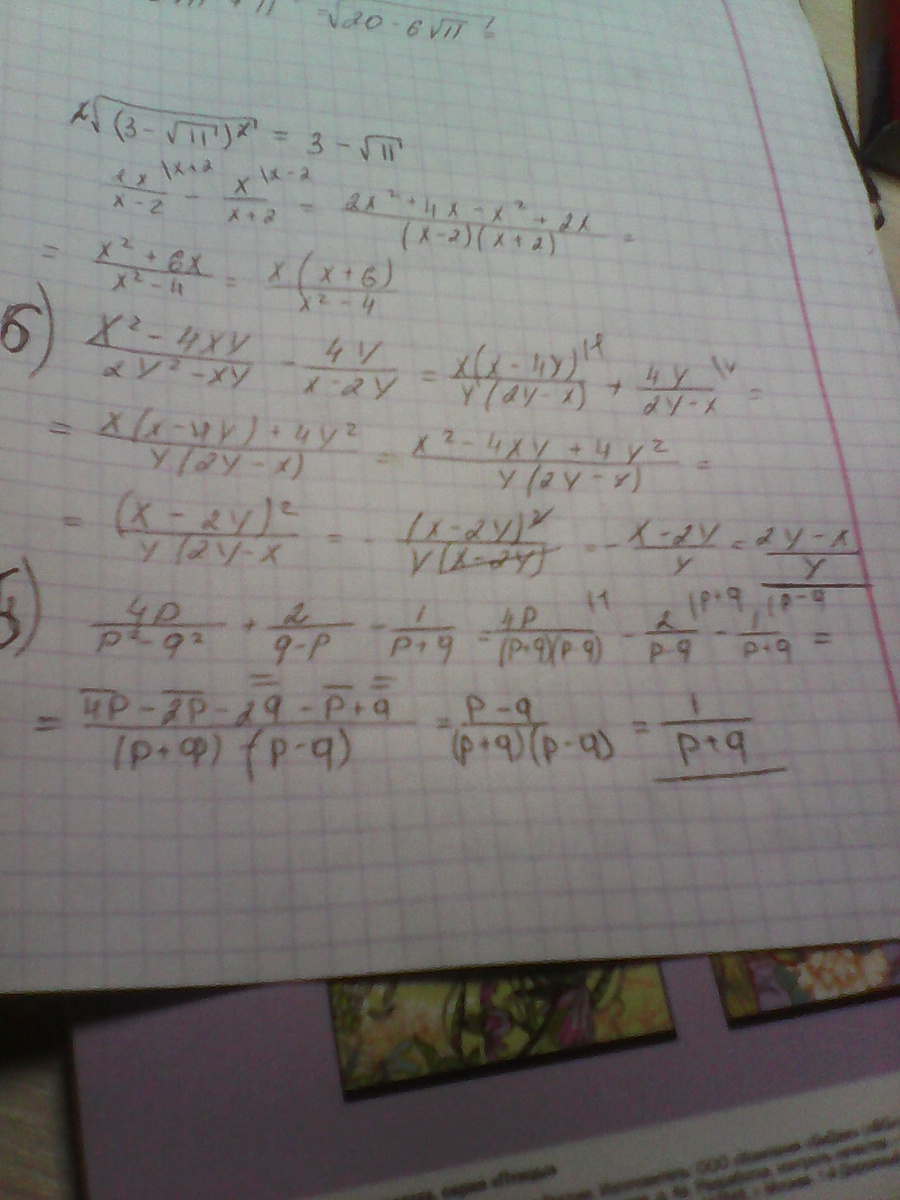 √20 - 6√11
²√(3 - √11)² = 3 - √11
2x/(x-2) \x+2 - x/(x+2) \x-2 = (2x² + 4x - x² + 2x)/((x-2)(x+2)) =
= (x² + 6x)/(x² - 4) = x(x+6)/(x² - 4)
б) (x² - 4xy)/(2y² - xy) - 4y/(x-2y) = x(x-4y)/(y(2y-x)) \1 + 4y/(2y-x) \y =
= (x(x-4y) + 4y²)/(y(2y-x)) = (x² - 4xy + 4y²)/(y(2y-x)) =
= (x - 2y)²/(y(2y-x) = - (x-2y)²/(y(x-2y)) = - (x-2y)/y = (2y-x)/y
4p/(p²-q²) + 2/(q-p) - 1/(p+q) = 4p/((p+q)(p-q)) \1 - 2/(p-q) \p+q - 1/(p+q) \p-q =
= (4p - 2p - 2q - p + q)/((p+q)(p-q)) = (p-q)/((p+q)(p-q)) = 1/(p+q)
серия «Птицы»